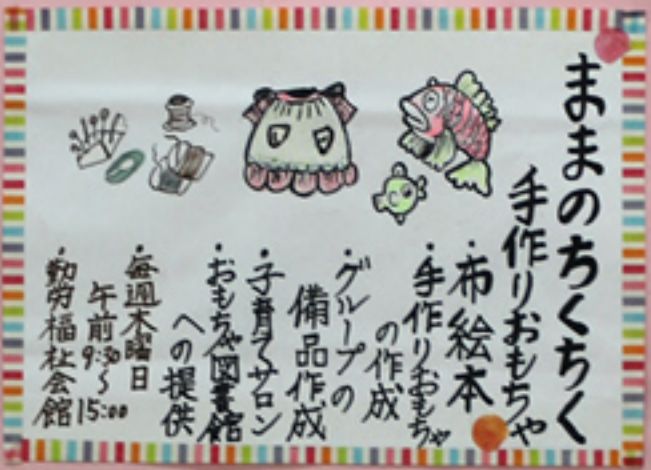 ままのちくちく
手作りおもちゃ
・布絵本
・手作りおもちゃ
の作成
・グループの
備品作成
・子育てサロン
・おもちゃ図書館
への提供
・毎週木曜日
午前9:30〜
15:00
・勤労福祉会館